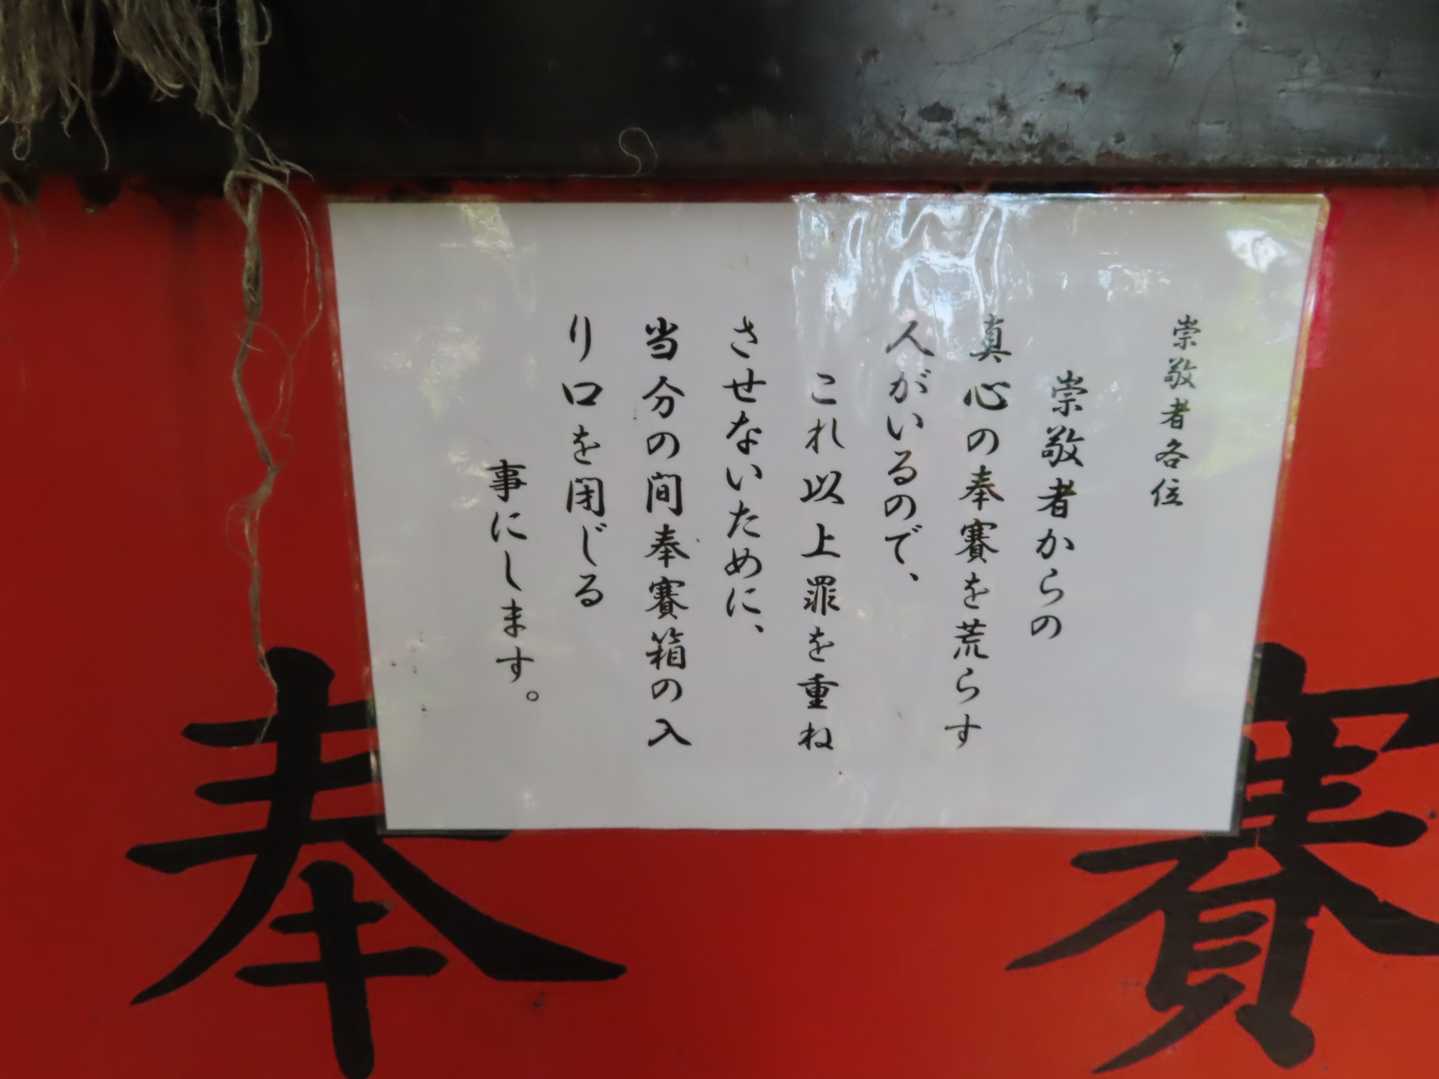 崇敬者各位
崇敬者からの
真心の奉賽を荒らす
人がいるので、
これ以上罪を重ね
させないために、
当分の間奉賽箱の入
り口を閉じる
事にします。
奉賽